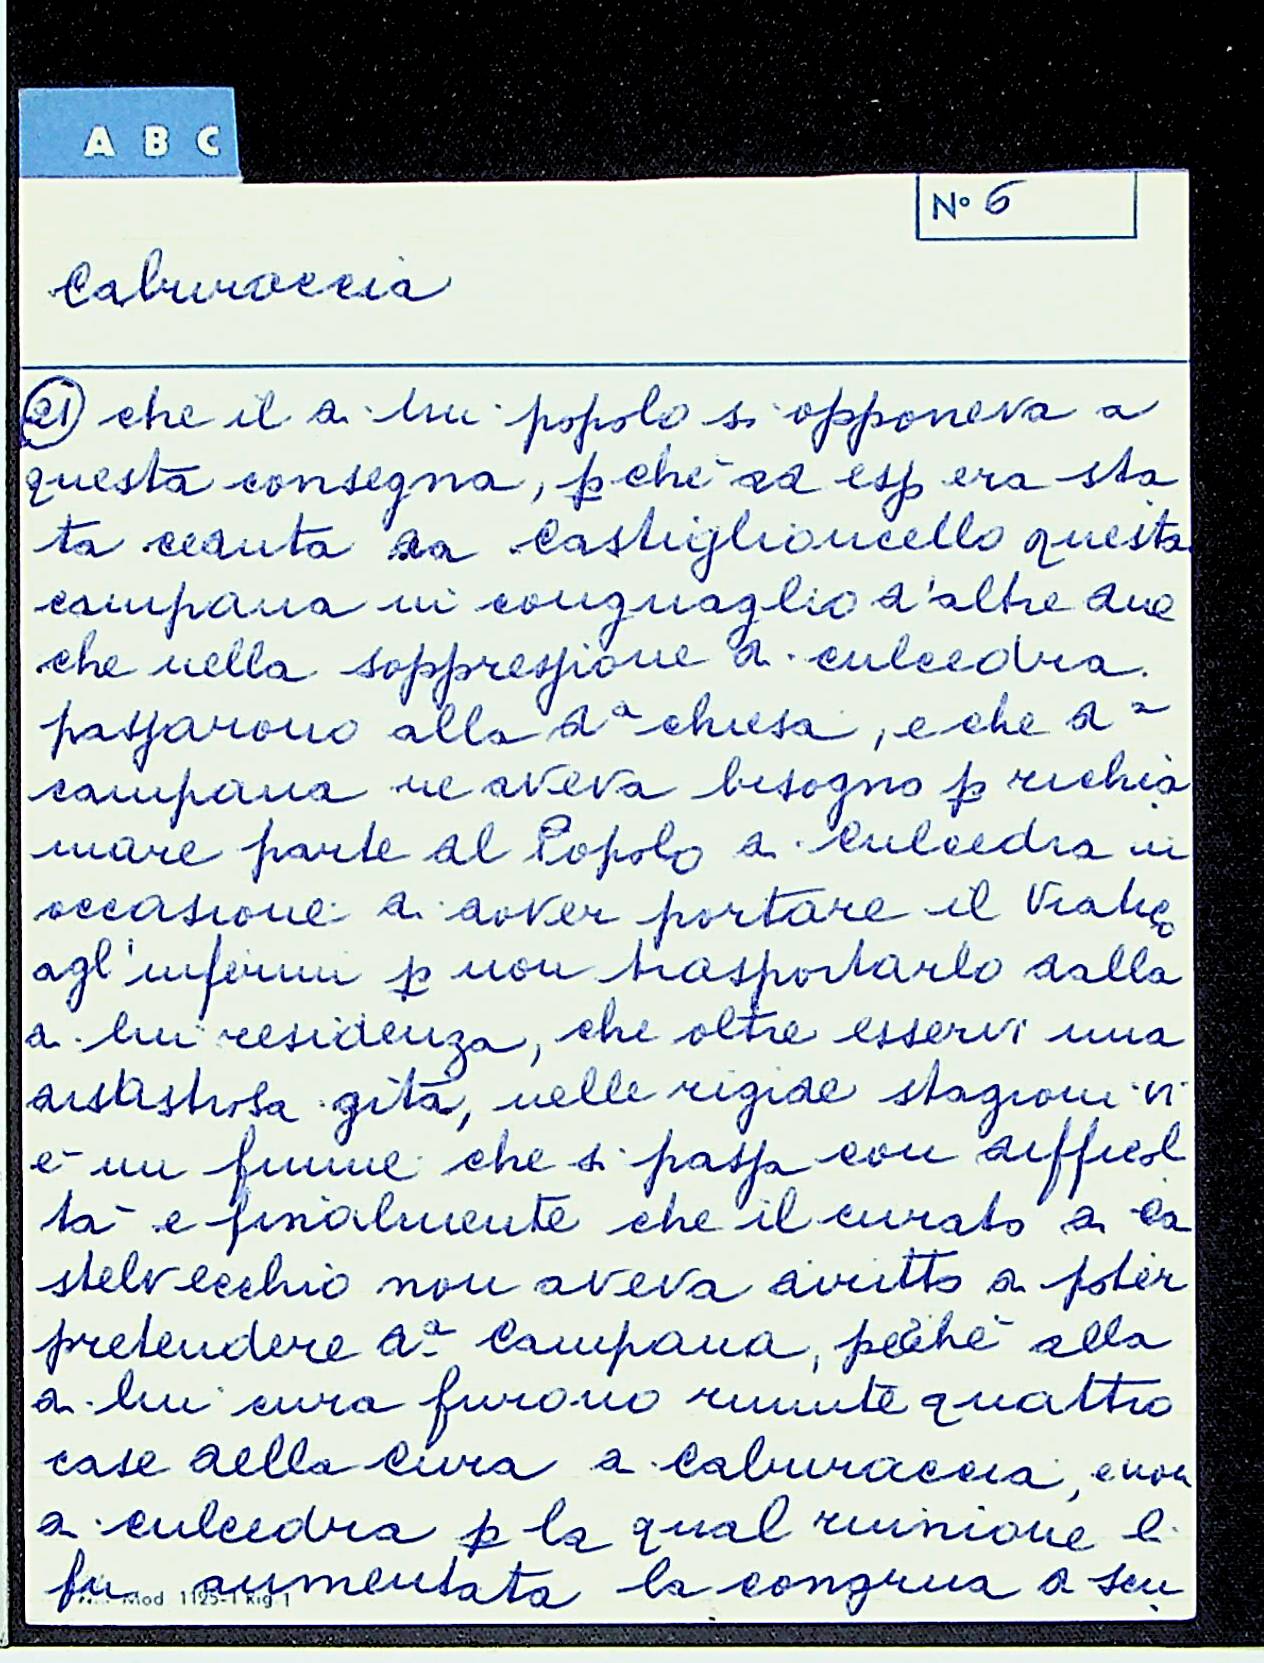 A B C
N° 6
Caburaccia
21) che il di lui popolo si opponeva a
questa consegna, pchè ad esp era sta
ta ceduta da Castiglioncello questa
campana in conguaglio d'altre due
che nella soppressione di culcedra.
passarono alla dª chiesa, e che dª
campana ne aveva bisogno p richia
mare parte al Popolo di Culcedra in
occasione di dover portare il Viatico
agl'infermi p non trasportarlo dalla
di lui residenza, che oltre esservi una
disastrosa gita, nelle rigide stagioni vi
è un fiume che si passa con difficol
tà e finalmente che il curato di Ca
stelvecchio non aveva diritto a poter
pretendere dª Campana, perchè alla
di lui cura furono riunite quattro
case della Cura di Caburaccia, e non
di culcedra p la qual riunione li
fu aumentata la congrua di scu
Mod 1125-1 Rig 1